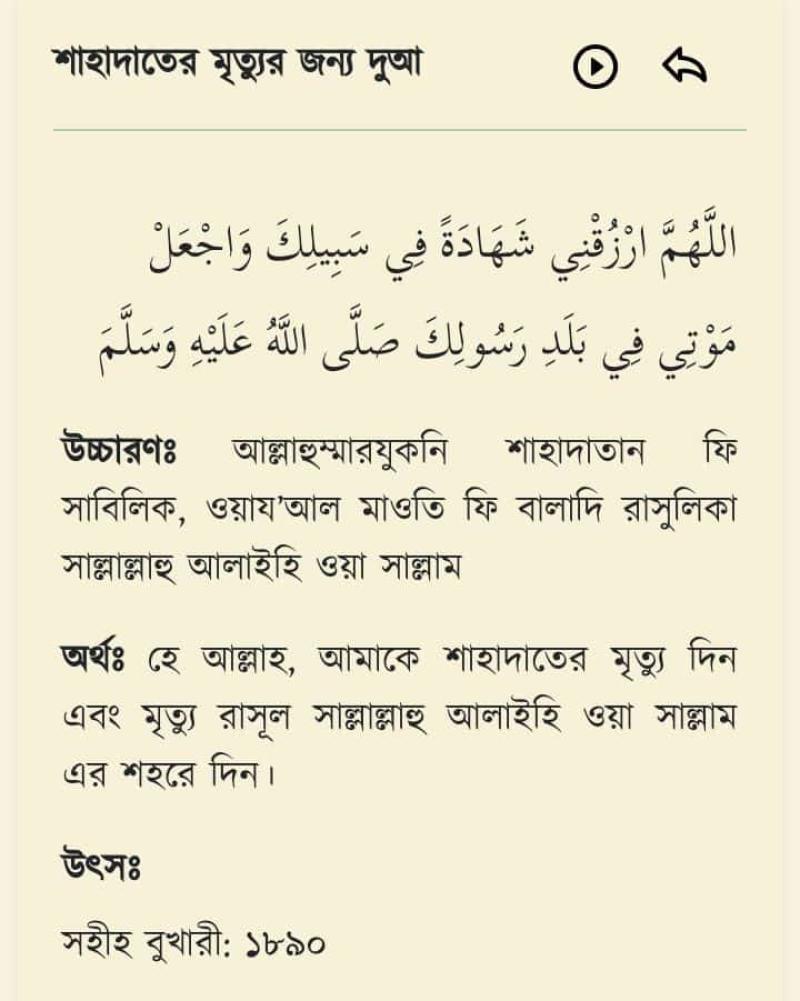 শাহাদাতের মৃত্যুর জন্য দুআ
اللَّهُمَّ ارْزُقْنِي شَهَادَةً فِي سَبِيلِكَ وَاجْعَلْ
مَوْتِي فِي بَلَدِ رَسُولِكَ صَلَّى اللَّهُ عَلَيْهِ وَسَلَّمَ
উচ্চারণঃ আল্লাহুম্মারযুকনি শাহাদাতান ফি
সাবিলিক, ওয়ায'আল মাওতি ফি বালাদি রাসুলিকা
সাল্লাল্লাহু আলাইহি ওয়া সাল্লাম
অর্থঃ হে আল্লাহ, আমাকে শাহাদাতের মৃত্যু দিন
এবং মৃত্যু রাসূল সাল্লাল্লাহু আলাইহি ওয়া সাল্লাম
এর শহরে দিন।
উৎসঃ
সহীহ বুখারী: ১৮৯০